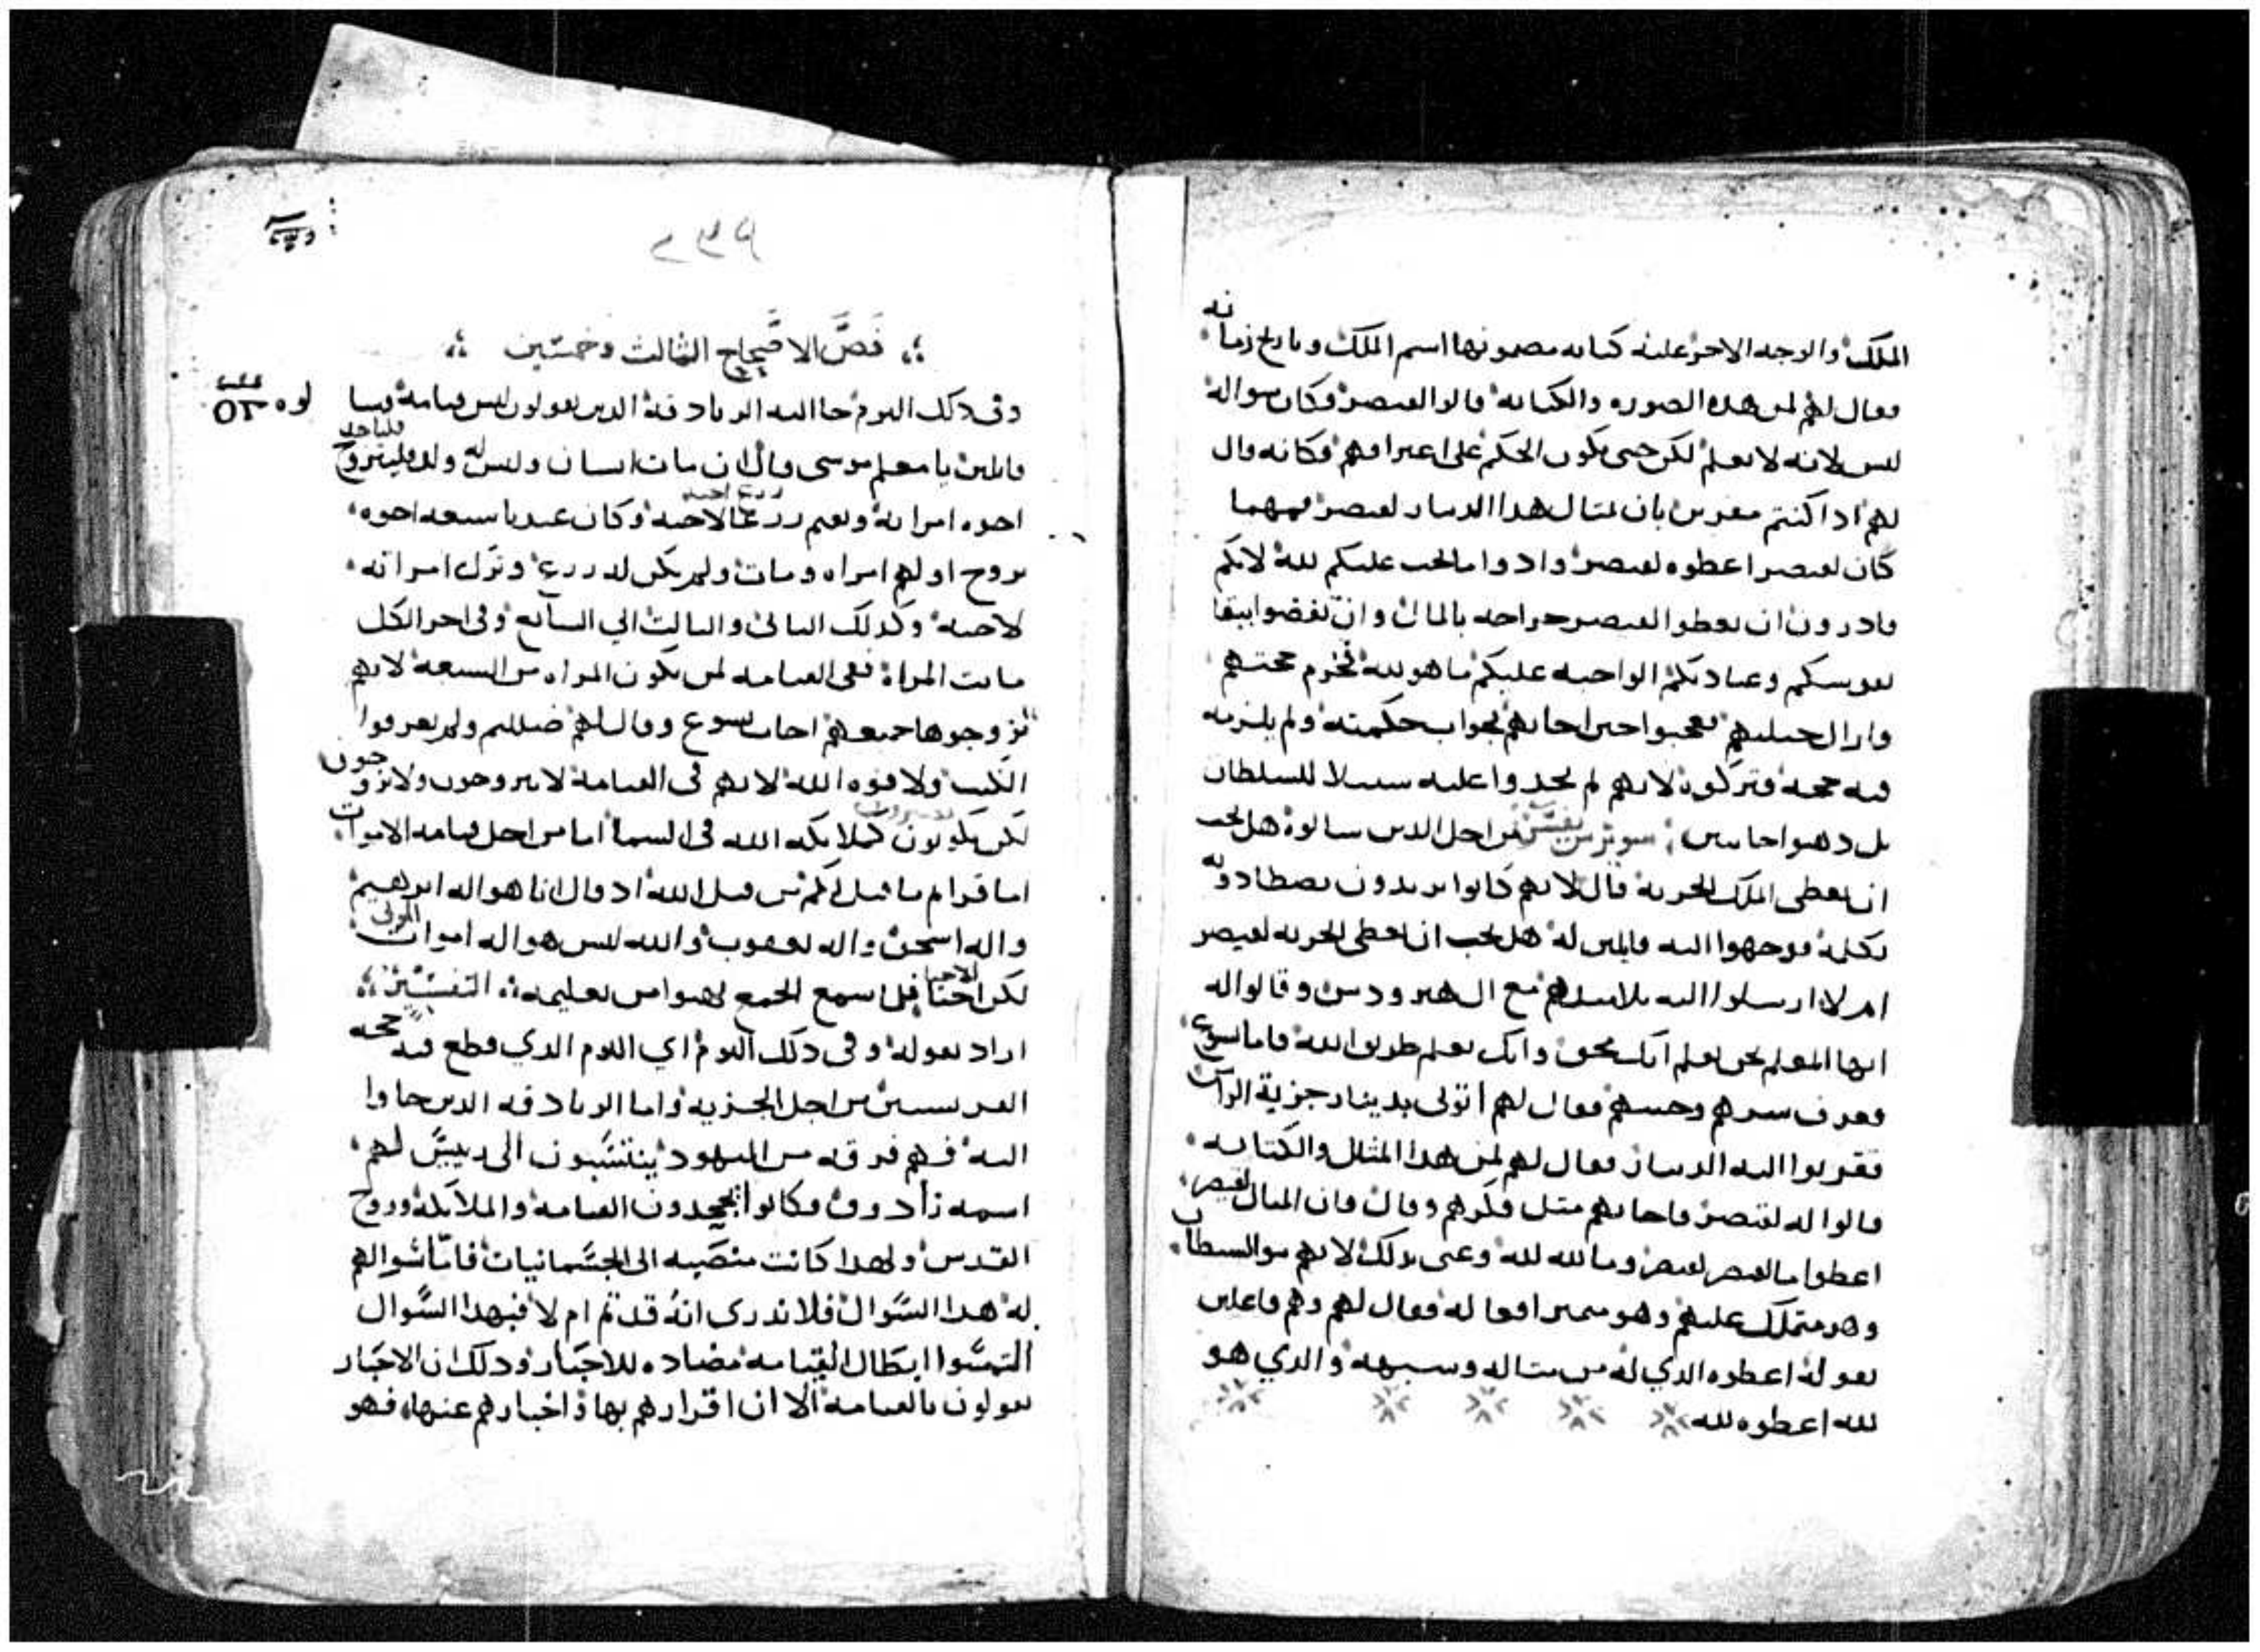 الملك والوجه الاخر عليه كتابه مضمونها اسم الملك وتاريخ زمانه
فقال لهم لمن هذه الصوره والكتابه قالوا لقيصر فكان سواله
ليس لانه لا يعلم لكن حتى يكون الحكم على اعترافهم فكانه قال
لهم اذا كنتم مقرين بان مثال هذا الدينار لقيصر فمهما
كان لقيصر اعطوه لقيصر وادوا ما يجب عليكم لله لانكم
قادرون ان تعطوا لقيصر خراجه بالمال وان تفضوا ببقا
نفوسكم وعبادتكم الواجبه عليكم ما هو لله فخرم حجتهم
وازال حيلتهم تعجبوا حين اجابهم بجواب حكمته ولم يلزمه
فيه حجه فتركوه لانهم لم يجدوا عليه سبيلا للسلطان
بل ذهبوا خايبين سويرس يفسر من اجل الذين سالوه هل يجب
ان نعطى الملك الجزيه قال لانهم كانوا يريدون يصطادونه
بكلمه فوجهوا اليه قايلين له هل يجب ان نعطى الجزيه لقيصر
ام لا ارسلوا اليه تلاميذهم مع ال هيرودس وقالوا له
ايها المعلم نحن نعلم انك محق وانك تعلم طريق الله فاما يسوع
فعرف شرهم وخبثهم فقال لهم اتونى بدينار جزية الراس
فقربوا اليه الدينار فقال لهم لمن هذا المثال والكتابه
قالوا له لقيصر فاجابهم مثل فكرهم وقال فان المثال لقيصر
اعطوا ما لقيصر لقيصر وما لله لله وعنى بذلك لانهم سو الشيطان
وهو متملك عليهم وهو متميز افعاله فقال لهم وهم فاعلين
بقوله اعطوه الذي له من مثاله وشبهه والذي هو
لله اعطوه لله
٢٣٩
فَصّ الاصحاح الثالث وخمسين
وفى ذلك اليوم جا اليه الزنادقه الذين يقولون ليس قيامه فسا
٥٣
قايلين يا معلم موسى قال ان مات انسان وليس له ولد فليتزوج
فلياخذ
اخوه امراته ويقيم زرعا لاخيه وكان عندنا سبعه اخوه
زرع اخيه
تزوج اولهم امراه ومات ولم يكن له زرع وترك امراته
لاخيه وكذلك الثانى والثالث الي السابع وفى اخر الكل
ماتت المراه ففى القيامه لمن تكون المراه من السبعه لانهم
تزوجوها جميعهم اجاب يسوع وقال لهم ضللتم ولم تعرفوا
الكتب ولا قوه الله لانهم فى القيامه لا يتزوجون ولا يزوجون
لكن يكونون كملايكه الله فى السما اما من اجل قيامه الاموات
اما قراتم ما قيل لكم من قبل الله اذ قال انا هو اله ابرهيم
واله اسحق واله يعقوب والله ليس هو اله اموات
الموتى
لكن احيا فلما سمع الجمع بهتوا من تعليمه التفسير
الاحيا
اراد بقوله وفى ذلك اليوم اي اليوم الذي قطع فيه حجه
الفريسيين من اجل الجزيه واما الزنادقه الذين جاوا
اليه فهم فرقه من اليهود ينتسبون الى رييس لهم
اسمه زادوق وكانوا يجحدون القيامه والملايكه وروح
القدس ولهذا كانت منصبه الى الجسمانيات فاما سوالهم
له هدا السّوال فلا ندرى انه قد تم ام لا فبهدا السّوال
التمسّوا ابطال القيامه مضاده للاحبار وذلك ان الاحبار
يقولون بالقيامه الا ان اقرارهم بها واخبارهم عنها فهو